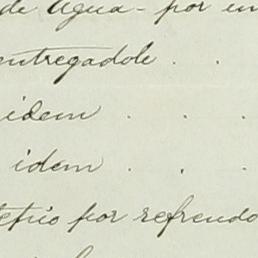 de Agua - por en
entregadole . .
idem . . .
idem . . .
por refrendo